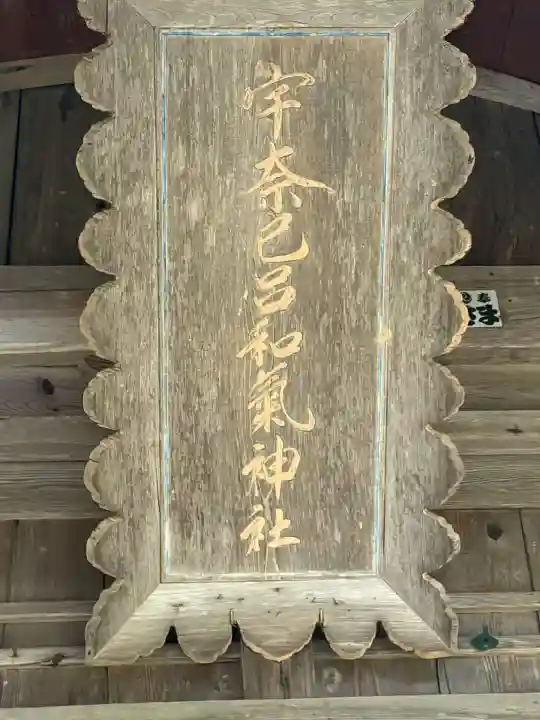 宇奈己呂和氣神社
奉